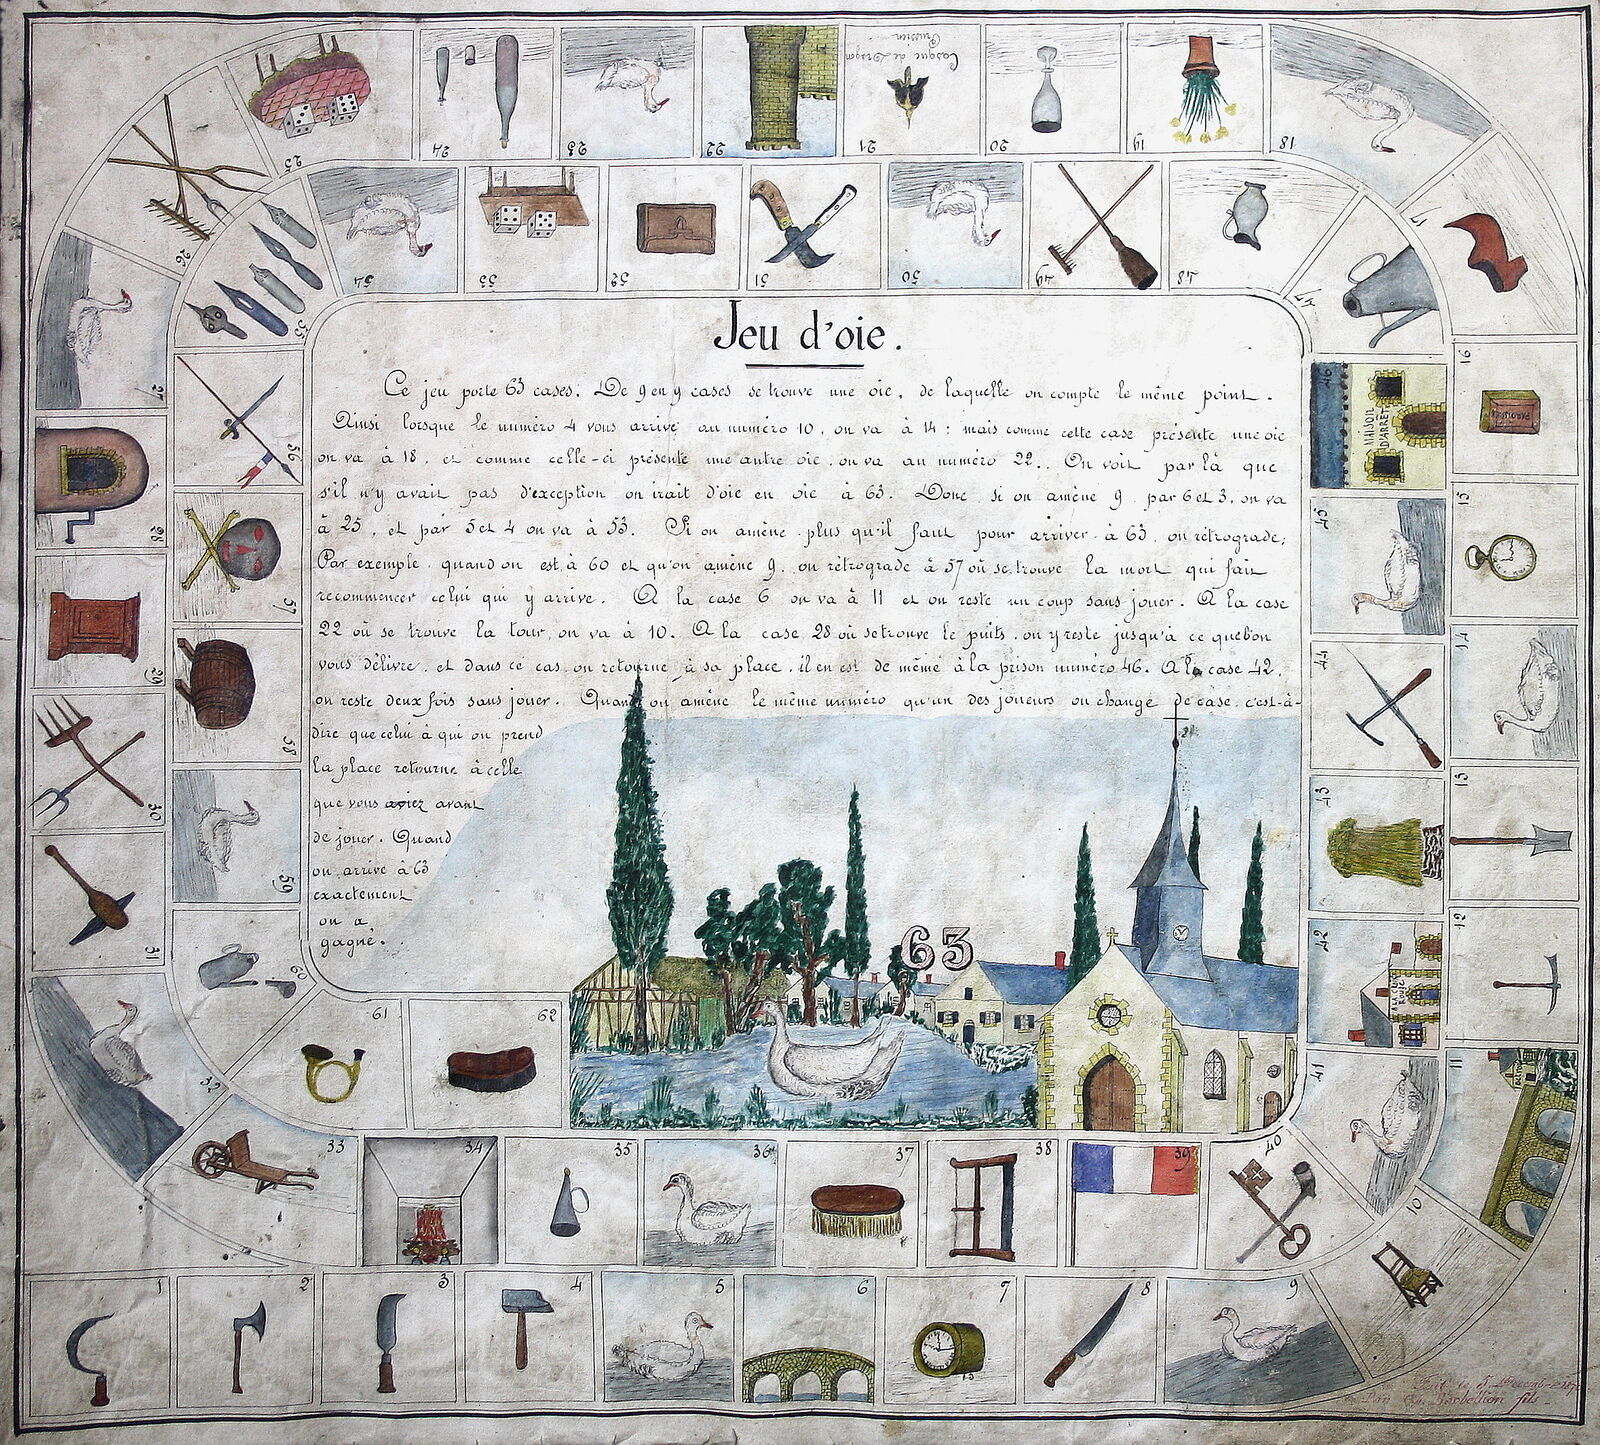 Jeu d'oie.
Ce jeu porte 63 cases. De 9 en 9 cases se trouve une oie, de laquelle on compte le même point.
Ainsi lorsque le numéro 4 vous arrive au numéro 10, on va à 14 : mais comme cette case présente une oie
on va à 18, et comme celle-ci présente une autre oie, on va au numéro 22.. On voit par là que
s'il n'y avait pas d'exception on irait d'oie en oie à 63. Donc si on amène 9 par 6 et 3, on va
à 25, et par 5 et 4 on va à 53. Si on amène plus qu'il faut pour arriver à 63, on rétrograde;
Par exemple, quand on est à 60 et qu'on amène 9, on rétrograde à 57 où se trouve la mort qui fait
recommencer celui qui y arrive. A la case 6 on va à 11 et on reste un coup sans jouer. A la case
22 où se trouve la tour, on va à 10. A la case 28 où se trouve le puits, on y reste jusqu'à ce que l'on
vous délivre, et dans ce cas on retourne à sa place, il en est de même à la prison numéro 46. A la case 42,
on reste deux fois sans jouer. Quand on amène le même numéro qu'un des joueurs on change de case, c'est-à-
dire que celui à qui on prend
la place retourne à celle
que vous aviez avant
de jouer. Quand
on arrive à 63
exactement
on a
gagné.
1
2
3
4
5
6
7
8
9
10
11
12
13
14
15
16
17
18
19
20
21
Casque de Dragon
Prussien
22
23
24
25
26
27
28
29
30
31
32
33
34
35
36
37
38
39
40
41
42
43
44
45
46
MAISON
D'ARRET
47
48
49
50
51
52
53
54
55
56
57
58
59
60
61
62
63
fils